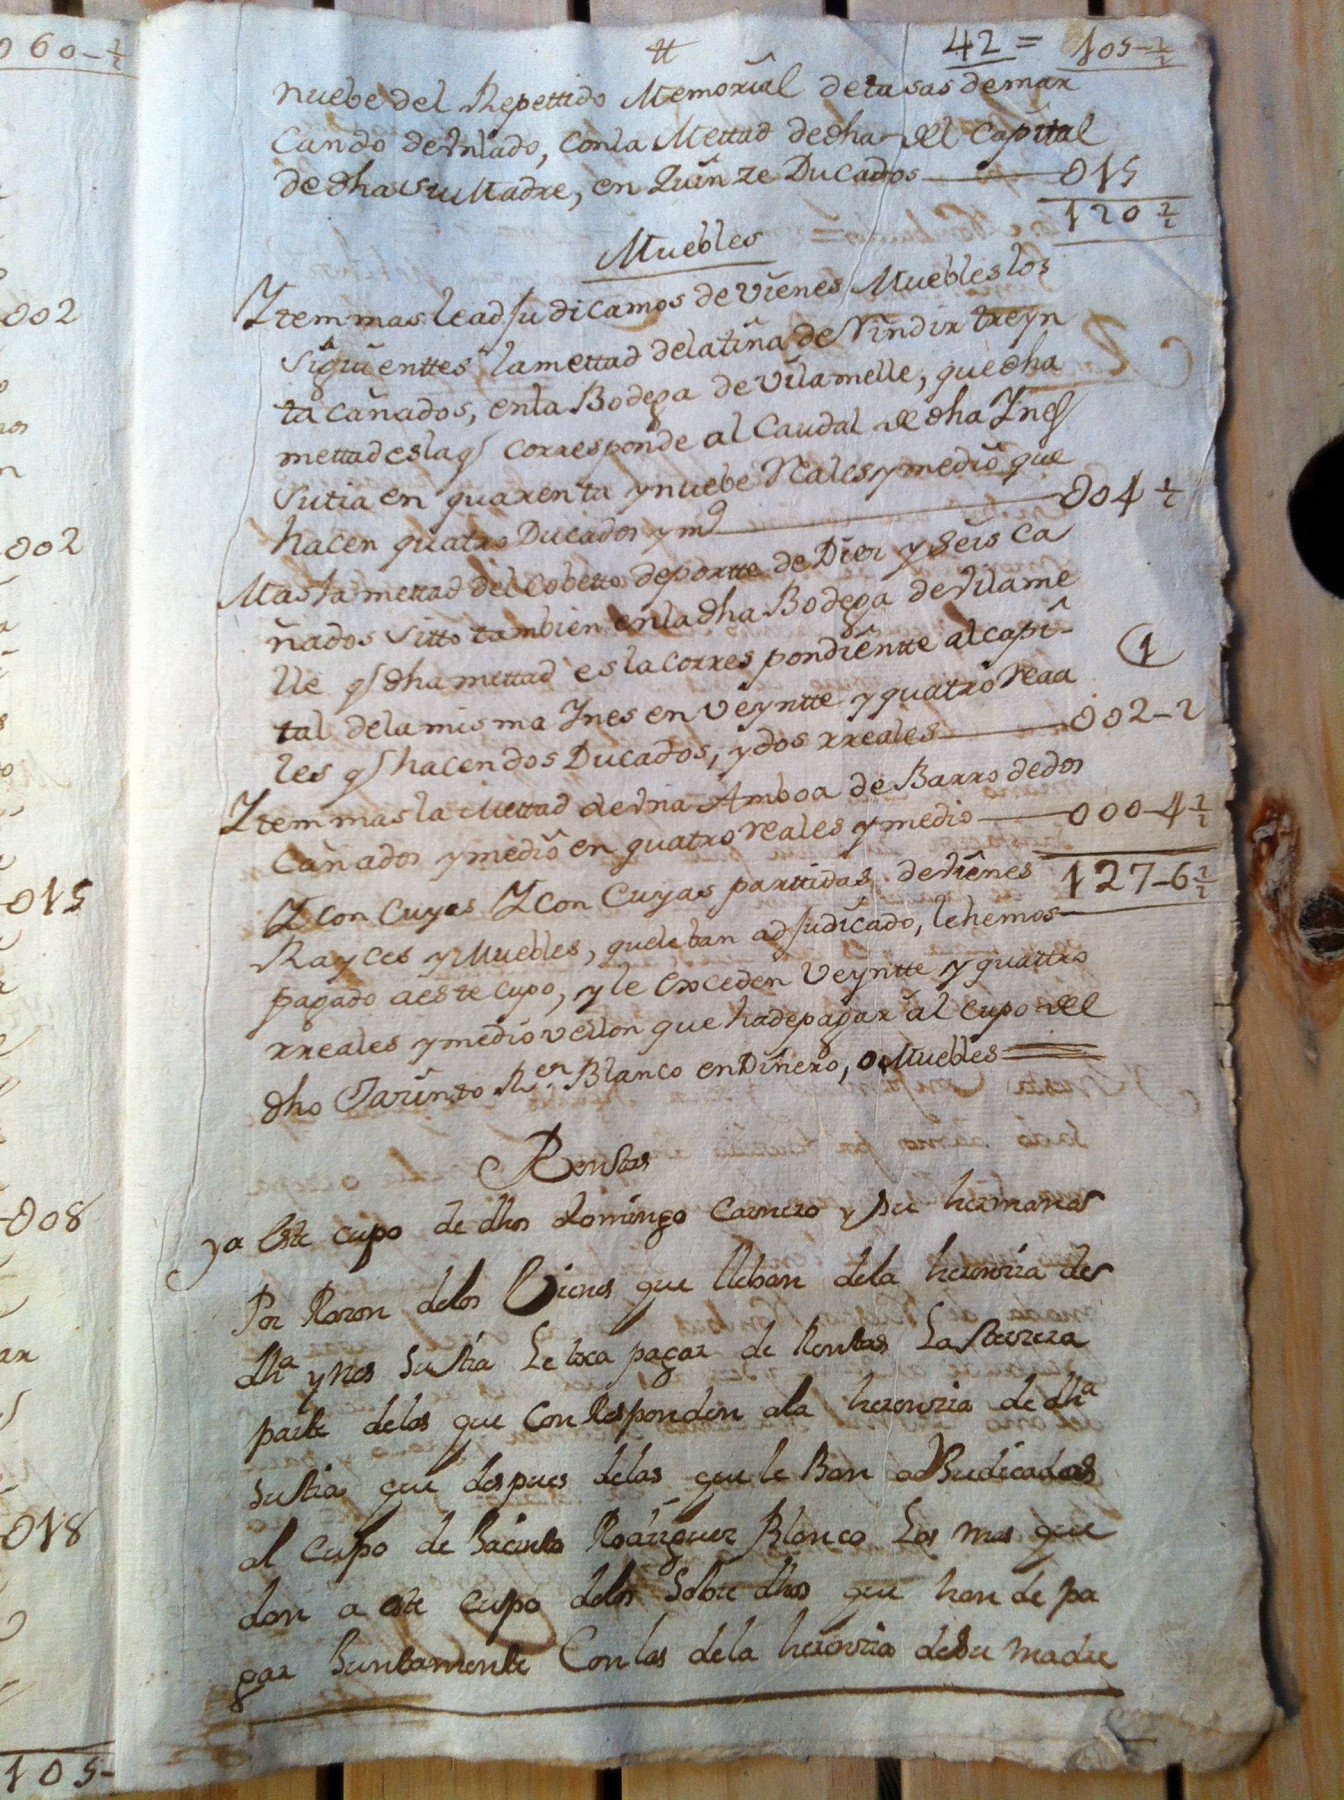 42 = 105-½
nuebe del Repettido Memorial detasas demar
cando deunlado, conla Mettad dedha del Capital
dedha su Madre, en Quinze Ducados 015
120 ½
Muebles
Ytem mas lead judicamos de vienes Muebles los
siguienttes la mettad delatina de Vindir treyn
ta cañados, enla Bodega de Vilamelle, que dha
mettad es la q corresponde al Caudal de dha Ynes
sutia en quarenta y nuebe Reales y medio que
hacen quatro Ducados y mº 004 ½
Mas la mettad del cobetto deportte de Diez y seis ca
ñados sitto tambien enla dha Bodega de Vilame
lle q dha mettad es la corres pondientte al capi-
tal dela misma Ynes en veyntte y quatro reaa
les q hacen dos Ducados, y dos rreales 002-2
1
Ytem mas la Mettad de una Amboa de Barro de dos
cañados y medio en quatro reales y medio 000-4½
Y con cuyas Y con Cuyas parttidas de vienes 127-6½
Rayces y Muebles, quele ban ad judicado, le hemos
pagado a este cupo, y le Exceden Veyntte y quattro
rreales y medio vellon que hadepagar al cupo del
dho Jacinto Rez Blanco en Dinero, o Muebles
Rentas
ya Este cupo de dhos domingo Carnero y su hermanas
Por Razon delos Bienes que lleban dela herenzia des
dha ynes su tia Le toca pagar de Rentas La terzera
parte delos que Con Responden ala herenzia de dha
su tia que despues delas que le Ban ad Judicadas
al Cupo de Jacinto Rodriguez Blanco Los mas que
dan a este cupo delos Sobre dhos que han de pa
gar Juntamente Con los dela herenzia desu madre
060-½
002
002
015
008
018
105-